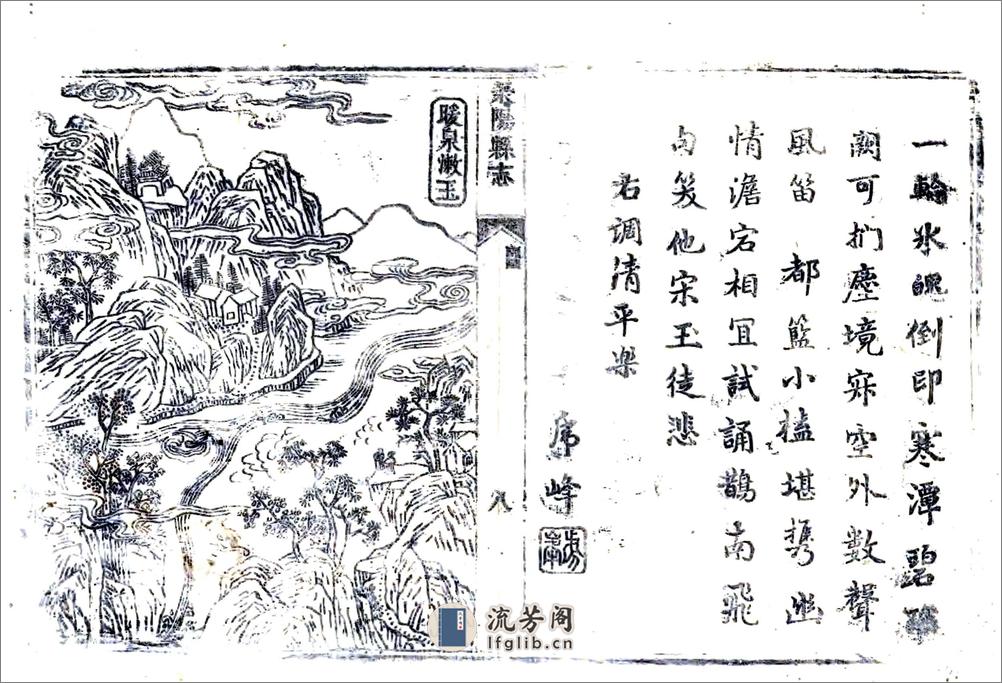 一輪氷魄倒印寒潭碧
闕可捫塵境寂空外數聲
風笛　都籃小榼堪携幽
情澹宕相宜試誦鵲南飛
句笑他宋玉徒悲
右調清平樂
峰
陽縣志
八
暖泉漱玉
流芳阁
lfglib.cn